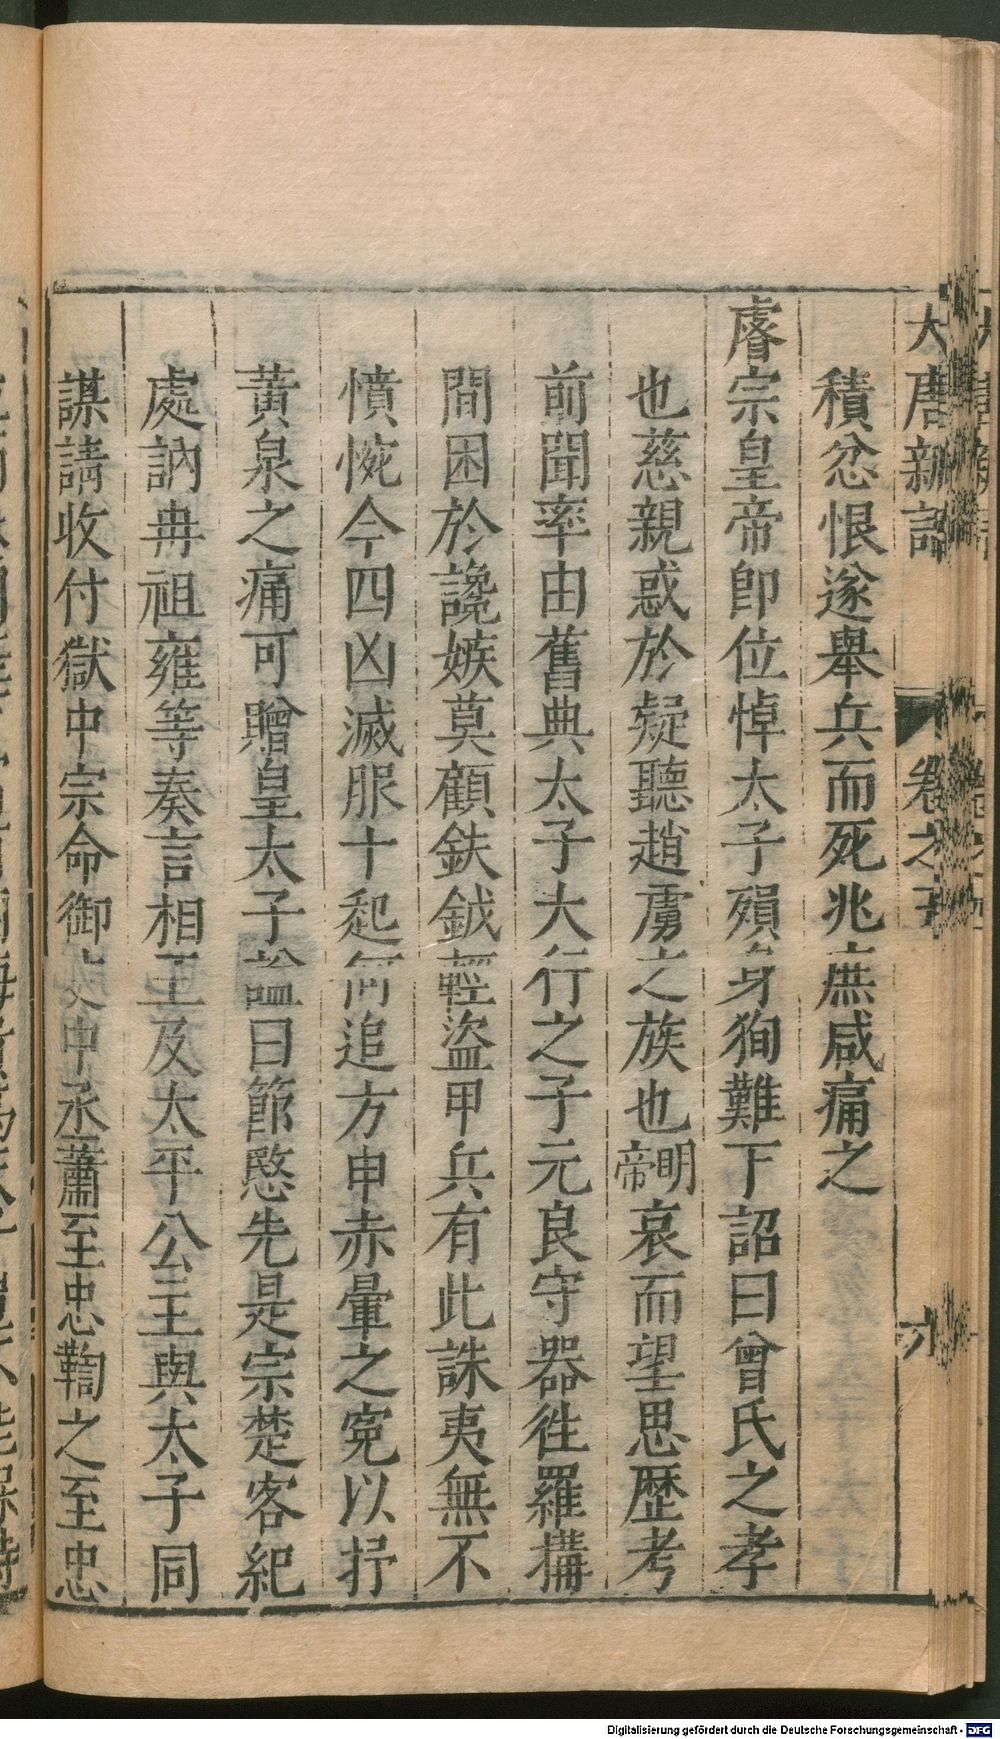 大唐新語 卷之五 六
積忿恨遂舉兵而死兆庶咸痛之
睿宗皇帝即位悼太子殞身狥難下詔曰曾氏之孝
也慈親惑於疑聽趙虜之族也明帝哀而望思歷考
前聞率由舊典太子大行之子元良守器徃羅搆
間困於讒嫉莫顧鈇鉞輕盜甲兵有此誅夷無不
憤惋今四凶滅服十起何追方申赤暈之寃以抒
黃泉之痛可贈皇太子謚曰節愍先是宗楚客紀
處訥冉祖雍等奏言相王及太平公主與太子同
謀請收付獄中宗命御史中丞蕭至忠鞫之至忠
Digitalisierung gefördert durch die Deutsche Forschungsgemeinschaft - DFG